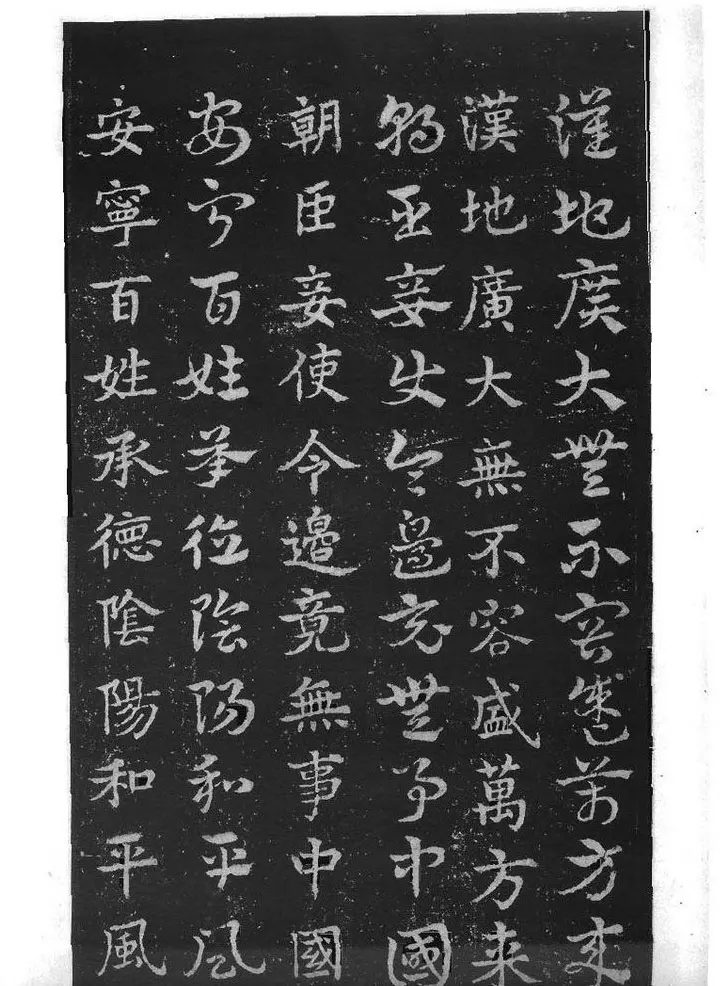 漢地廣大無不容盛萬方来
漢地廣大無不容盛萬方来
朝臣妾使令邊竟無事中國
朝臣妾使令邊竟無事中國
安寧百姓承德陰陽和平風
安寧百姓承德陰陽和平風